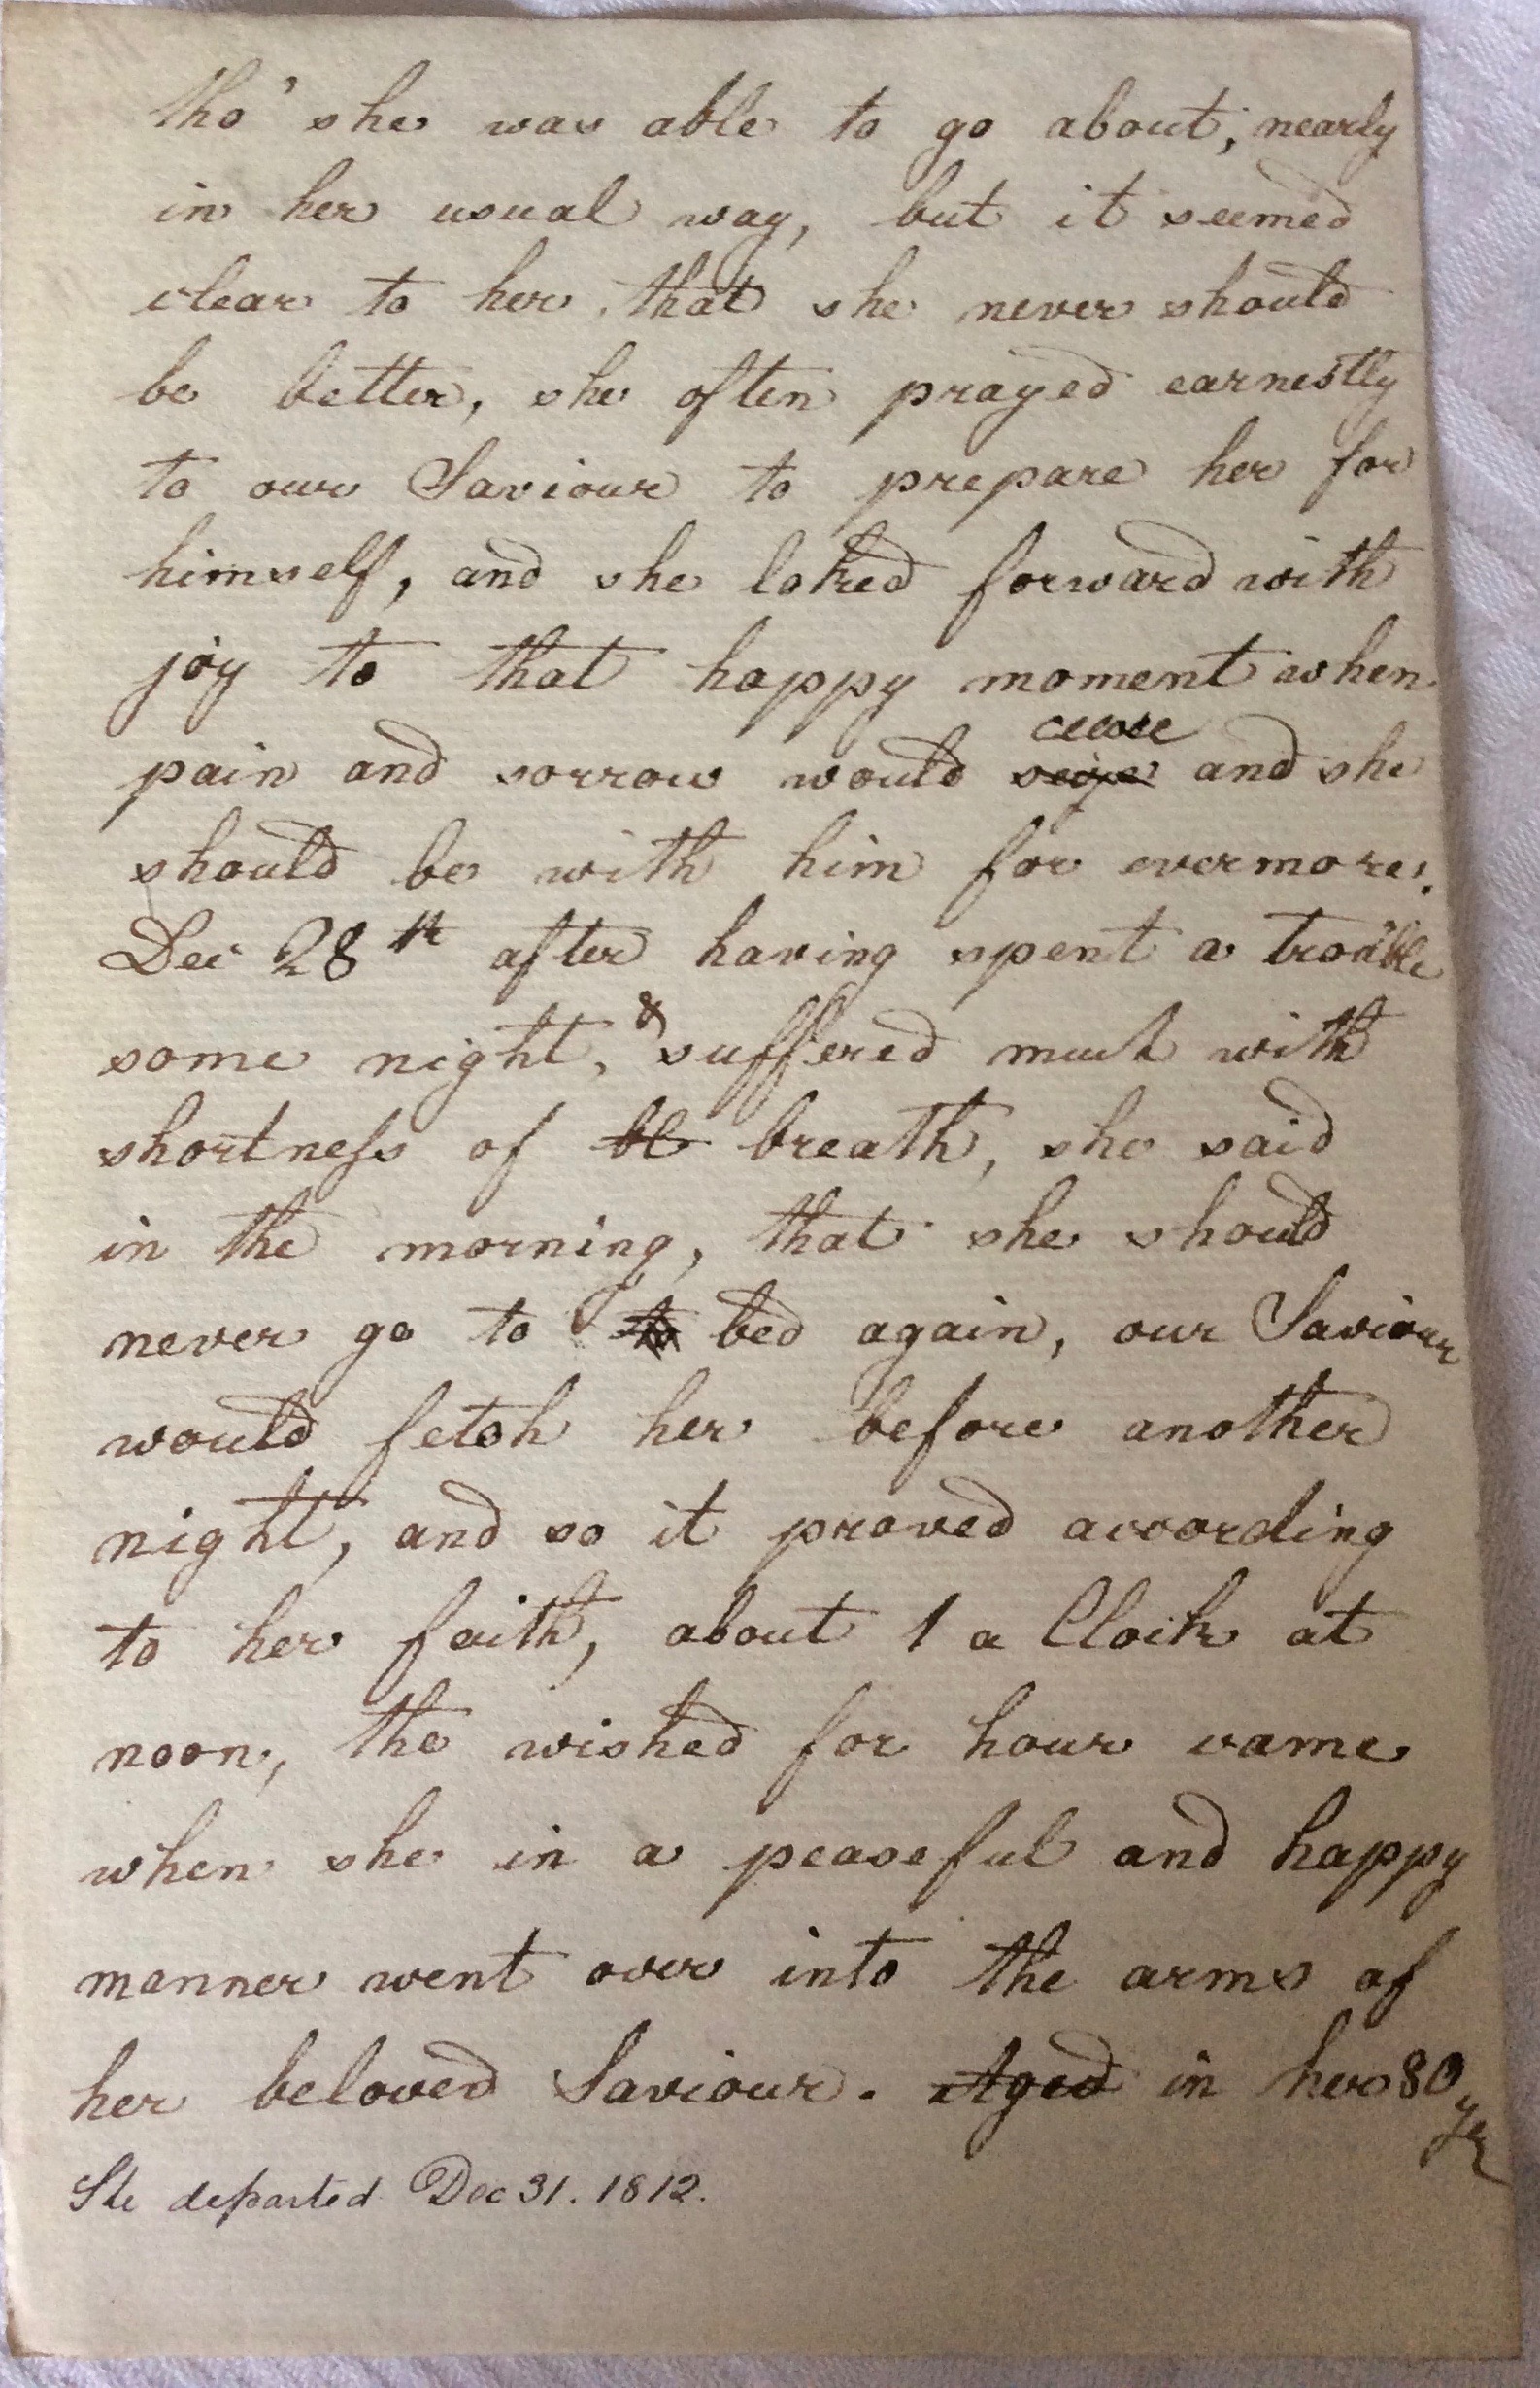 tho' she was able to go about, nearly
in her usual way, but it seemed
clear to her that she never should
be better, she often prayed earnestly
to our Saviour to prepare her for
himself, and she loked forward with
joy to that happy moment when
cease
pain and sorrow would seise and she
should be with him for evermore.
Dec 28th after having spent a trouble
some night, & suffered much with
shortness of be breath, she said
in the morning, that she should
never go to to bed again, our Saviour
would fetch her before another
night, and so it proved according
to her faith, about 1 a Clock at
noon, the wished for hour came
when she in a peaseful and happy
manner went over into the arms of
her beloved Saviour. Aged in her 80 yr
She departed Dec 31. 1812.